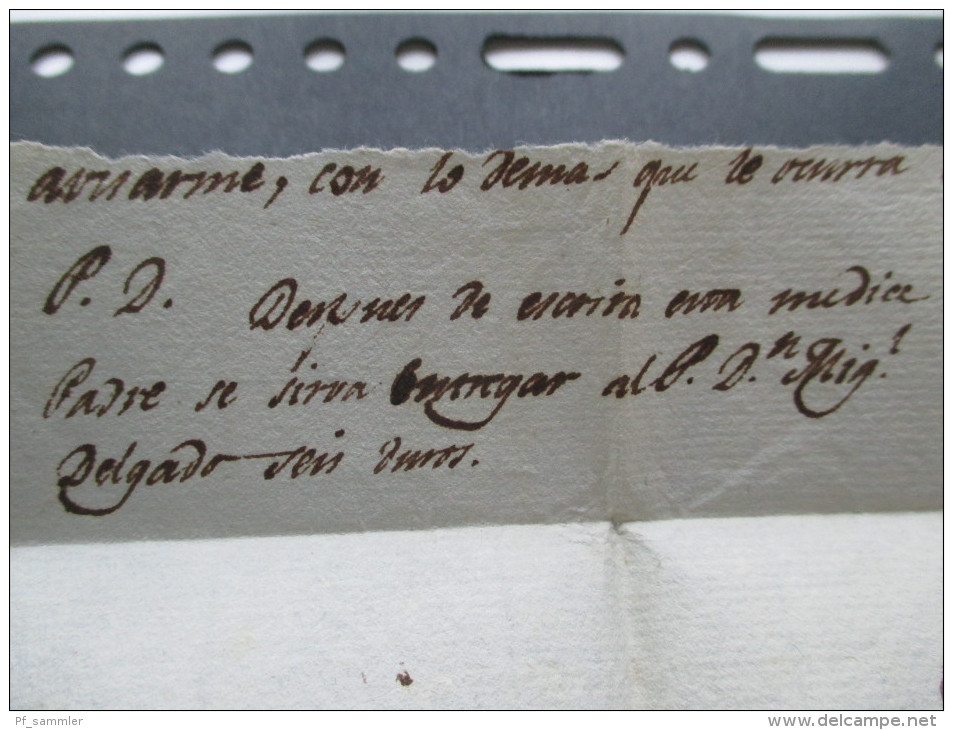 avisarme, con lo demas que le ocurra
P. D. Despues de escrita esta me dice
Padre se sirva entregar al P. D.n Mig.l
Delgado seis duros.
Pf_sammler
www.delcampe.net